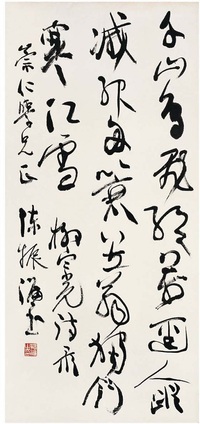 千山鳥飛絕萬逕人蹤
滅孤舟蓑笠翁獨釣
寒江雪 柳宗元詩
崇仁學兄正 陳振濂書